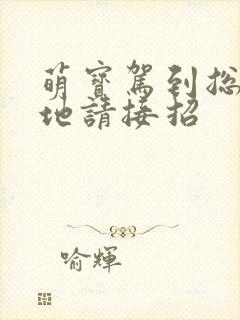 萌寶駕到总
地請接招
喻輝